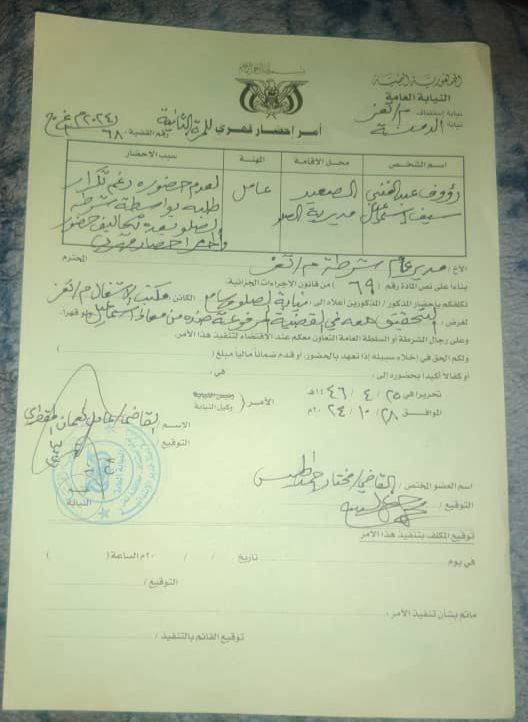 الجمهورية اليمنية
النيابة العامة
نيابة إستئناف م/تعز
نيابة الدمنة
أمر إحضار قهري للمرة الثانية
رقم القضية : ٦٨ ٢٠٢٤م
اسم الشخص محل الاقامة المهنة سبب الاحضار
رؤوف عبدالغني سيف إسماعيل
الصعيد مديرية الصلو
عامل
لعدم حضوره رغم تكرار
طلبه بواسطة شرطة
الصلو بعدة تكاليف حضور
وأمر احضار قهري
الأخ / مدير عام شرطة م/تعز المحترم
بناءا على نص المادة رقم ( ٦٩ ) من قانون الإجراءات الجزائية.
تكلفكم بإحضار المذكور / المذكورين أعلاه إلى نيابة الصلو الكائن:
لغرض: التحقيق معه في القضية المرفوعة ضده من معاذ إسماعيل ولو قهرا.
وعلى رجال الشرطة أو السلطة العامة التعاون معكم عند الاقتضاء لتنفيذ هذا الأمر.
ولكم الحق في إخلاء سبيله إذا تعهد بالحضور، أو قدم ضمانا ماليا مبلغ ( )
أو كفالا أكيدا بحضوره إلى : في :
تحريرا في ٢٥ / ٤ / ١٤٤٦هـ
الموافق ٢٨ / ١٠ / ٢٠٢٤م
الأمر ( رئيس النيابة
وكيل النيابة
الاسم القاضي/عادل نعمان
التوقيع /
النيابة
اسم العضو المختص / القاضي/مختار احمد
التوقيع /
توقيع المكلف بتنفيذ هذا الأمر
في يوم تاريخ / / ٢٠م الساعة ( )
التوقيع /
ماتم بشأن تنفيذ الأمر :
توقيع القائم بالتنفيذ /